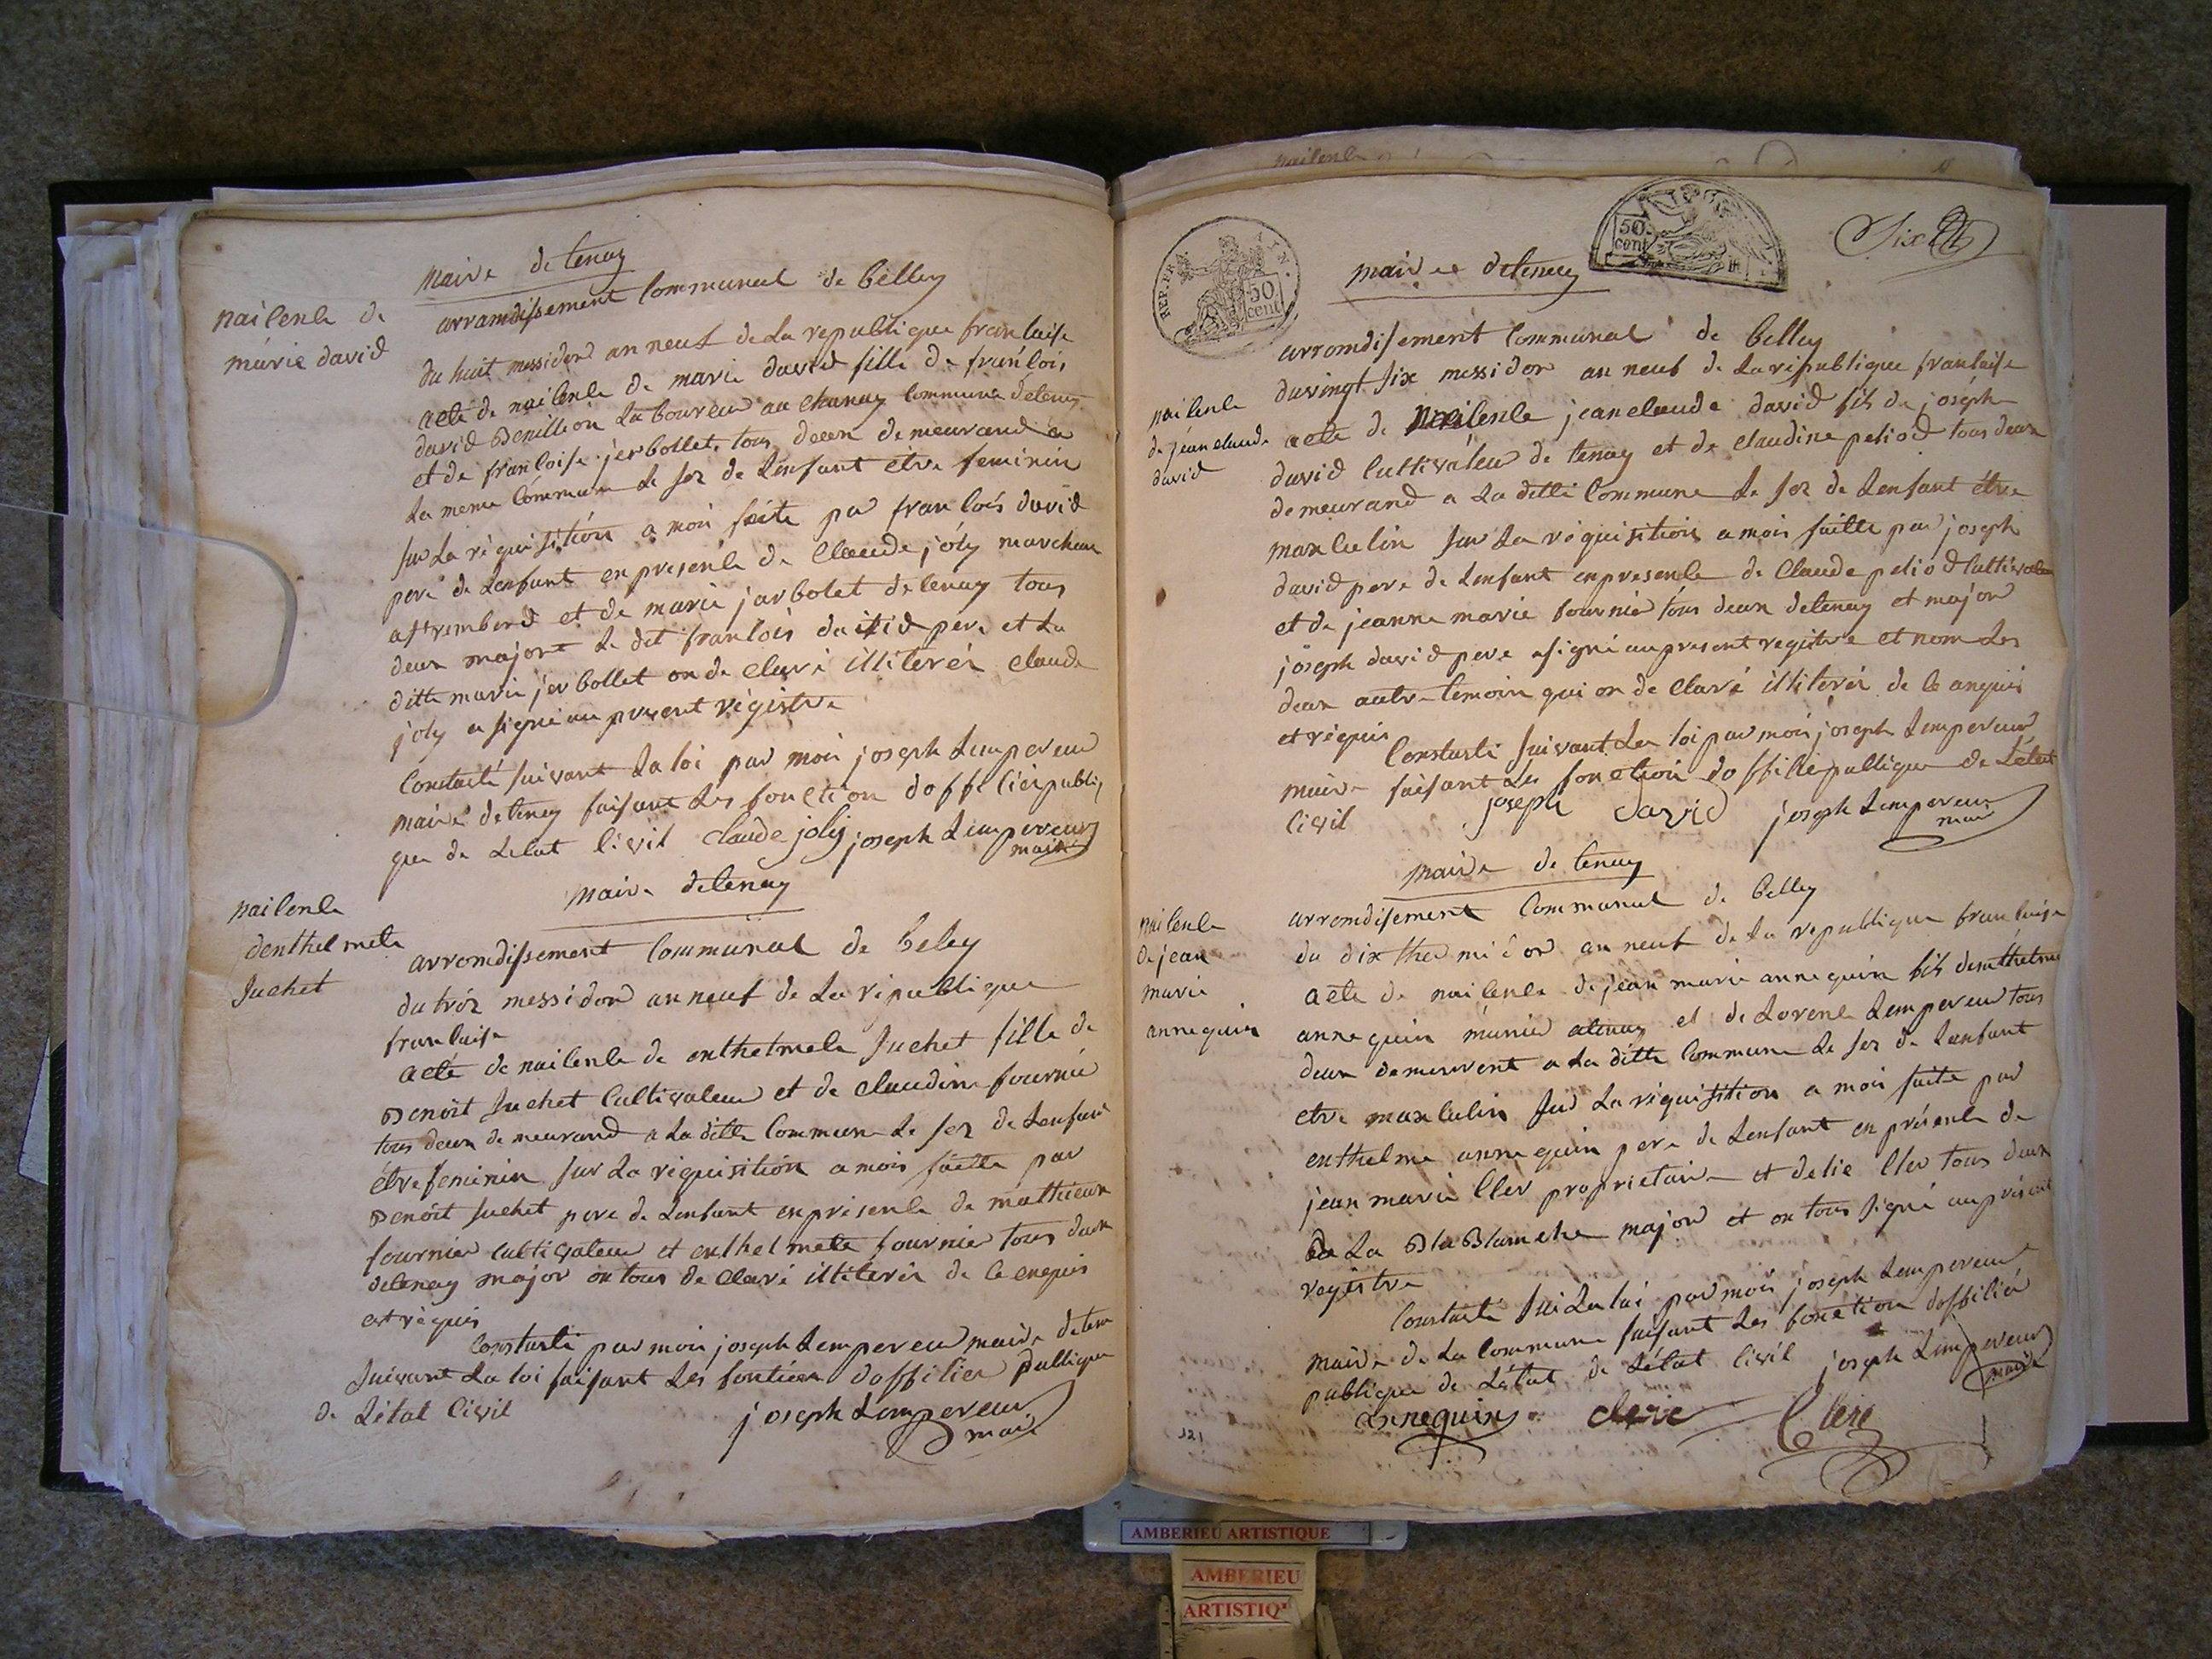 maire de tenay
arramdissement Communal de belley
nailenle de
marie david
du huit messidord an neuf de La republique franlaise
acte de nailenle de marie david fille de franlois
david Benillion Laboureur au chanay Commune detenay
et de franloise jerbollet tous deux demeurand a
La meme Commune Le sex de Lenfant etre feminin
sur La requisition a moi faite par franlois david
pere de Lenfant en presenle de Claude joly marchan
et de marie jarbolet detenay tous
deux major Le dit franlois david pere et La
ditte marie jerbollet on de Claré illiterér Claude
joly a signé au present registre
Constaté suivant La loi par moi joseph Lempereur
maire detenay faisant Les fonction doffilier publi
que de Letat livil Claude joly joseph Lempereur
maire
maire detenay
nailenle
denthelmete
Juchet
arromdissement Communal de beley
du troz messidord an neuf de La republique
franlaise
acte de nailenle de enthelmele Juchet fille de
Benoit Juchet Cultivateur et de Claudine fournié
tous deux demeurand a La ditte Commune Le sex de Lenfant
etre feminin sur La requisition a moi faitte par
Benoit Juchet pere de Lenfant en presenle de mathieux
fournier Cultivateur et enthelmete fournier tous deux
detenay major on tous de Claré illiterér de le enquis
et réquis
Constasté par moi joseph Lempereur maire detena
suivant La loi faisant Les fontion doffilier publique
de Létat Civil
joseph Lempereur
maire
nailenle
50 cent
REP. FRA
50 cent
Six
maire detenay
arromdisement Communal de belley
du vingt six messidor an neuf de La republique franlaise
nailenle
de jean claude
david
acte de nailenle jean claude david fils de joseph
david Cultivateur de tenay et de claudine peliod tous deux
demeurand a La ditte Commune Le sex de Lenfant étre
maxlulin sur La requisition a moi faitte par joseph
david pere de Lenfant en presenle de Claude peliod Cultivateu
et de jeanne marie fournié tous deux detenay et major
joseph david pere a signé au present registre et nom Les
deux autre temoin qui on de Claré illiterér de le anquis
et réquis
Constasté suivant La loi par moi joseph Lempereur
maire faisant Les fonction doffilié publique de Létat
Civil
joseph david joseph Lempereur
maire
maire de tenay
nailenle
de jean
marie
annequin
arromdisement Communal de belley
du dix thermidor an neuf de La republique franlaise
acte de nailenle de jean marie annequin fils denthelme
annequin munié atenay et de Lorenle Lempereur tous
deux demeurent a La ditte Commune Le sex de Lenfant
etre maxlulin sur La requisition a moi faite par
enthelme annequin pere de Lenfant en présenle de
jean marie Cler proprietaire et delie Cler tous deux
de La Bla Blanche major et on tous signé au présent
registre
Constaté sui La loi par moi joseph Lempereur
maire de La Commune faisant Les fonction doffilié
publique de Létat de Létat Civil joseph Lempereur
maire
annequin clerc Clerc
121
AMBERIEU ARTISTIQUE
AMBERIEU
ARTISTIQ